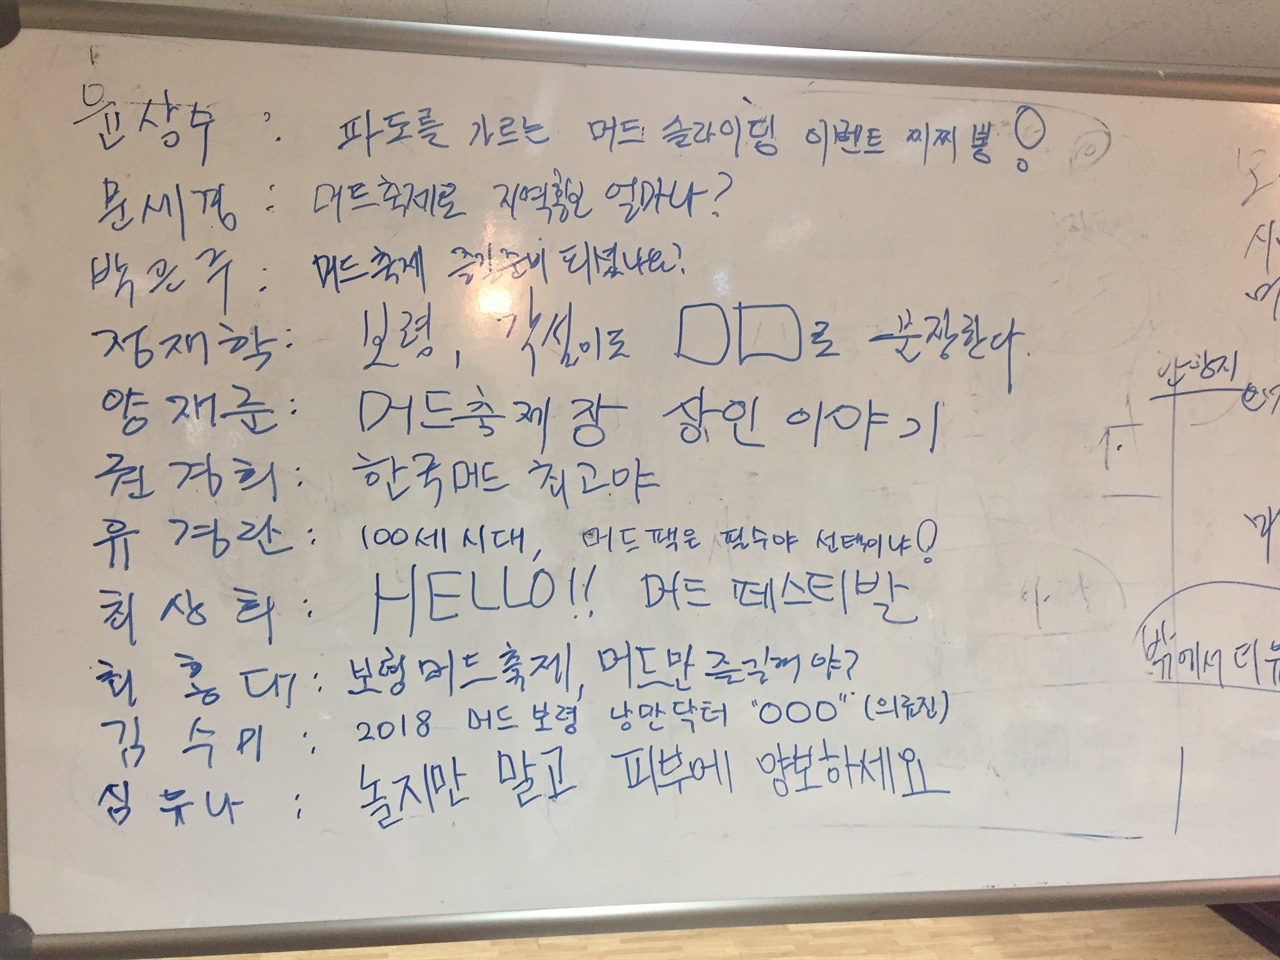 윤상수 : 파도를 가르는 머드 슬라이딩 이벤트 찌찌뽕!
문세경 : 머드축제로 지역홍보 얼마나?
박은주 : 머드축제 즐길준비 되셨나요?
정재학 : 보령, 각설이도 □□로 분장한다.
양재준 : 머드축제장 상인 이야기
권경희 : 한국머드 최고야
유경란 : 100세시대, 머드팩은 필수야 선택이냐?
최상희 : HELLO!! 머드 페스티발
최홍대 : 보령머드축제, 머드만 즐길꺼야?
김수미 : 2018 머드 보령 낭만닥터 "OOO" (의료진)
심유나 : 놀지만 말고 피부에 양보하세요
밖에서